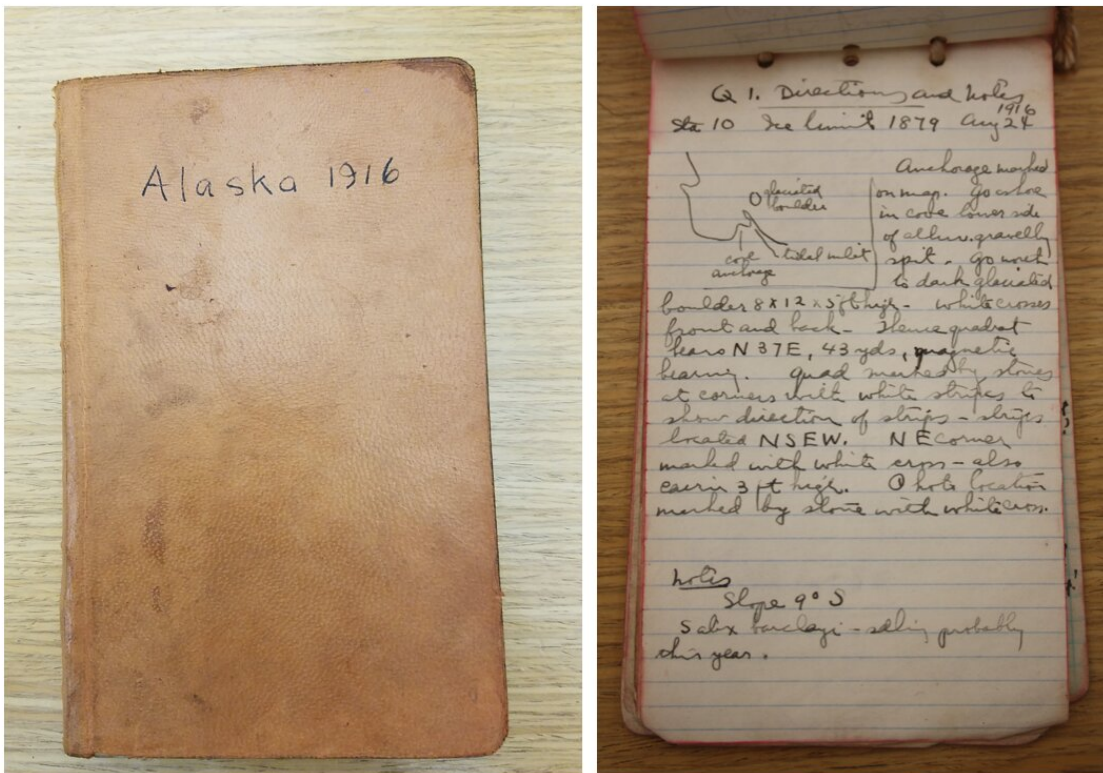 Alaska 1916
Q 1. Directions and Notes
1916
Sta 10 Ice limit 1879 Aug 24
Anchorage marked
on map. Go ashore
in cove lower side
of alluv. gravelly
spit. Go north
to dark glaciated
glaciated
boulder
cove
anchorage
tidal inlet
boulder 8 x 12 x 5 ft high - white crosses
front and back - Thence quadrat
bears N 37 E, 43 yds, magnetic
bearing. quad marked by stones
at corners with white stripes to
show direction of strips - strips
located NSEW. NE corner
marked with white cross - also
cairn 3 ft high. Photo location
marked by stone with white cross.
Notes
Slope 9° S
Salix barclayi - sdling probably
this year.